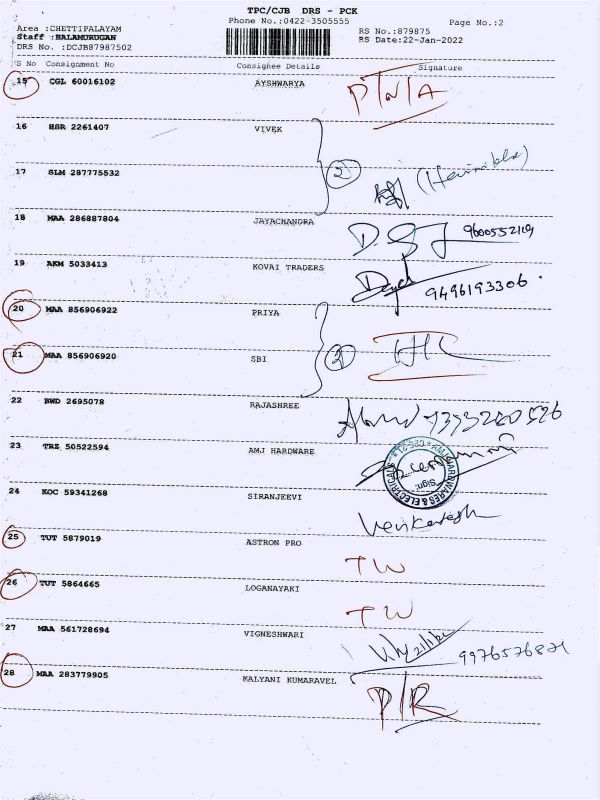 TPC/CJB DRS - PCK
Phone No.:0422-3505555
Page No.:2
Area :CHETTIPALAYAM
RS No.:879875
Staff :BALAMURUGAN
RS Date:22-Jan-2022
DRS No. :DCJB87987502
S No Consignment No Consignee Details Signature
15 CGL 60016102 AYSHWARYA P/N/A
16 HSR 2261407 VIVEK
2
17 SLM 287775532
18 MAA 286887804 JAYACHANDRA 9600552119
19 AKM 5033413 KOVAI TRADERS 9496193306
20 MAA 856906922 PRIYA
2
21 MAA 856906920 SBI
22 BWD 2695078 RAJASHREE
23 TRZ 50522594 AMJ HARDWARE
24 KOC 59341268 SIRANJEEVI Venkatesh
25 TUT 5879019 ASTRON PRO TW
26 TUT 5864665 LOGANAYAKI TW
27 MAA 561728694 VIGNESHWARI
28 MAA 283779905 KALYANI KUMARAVEL P/R